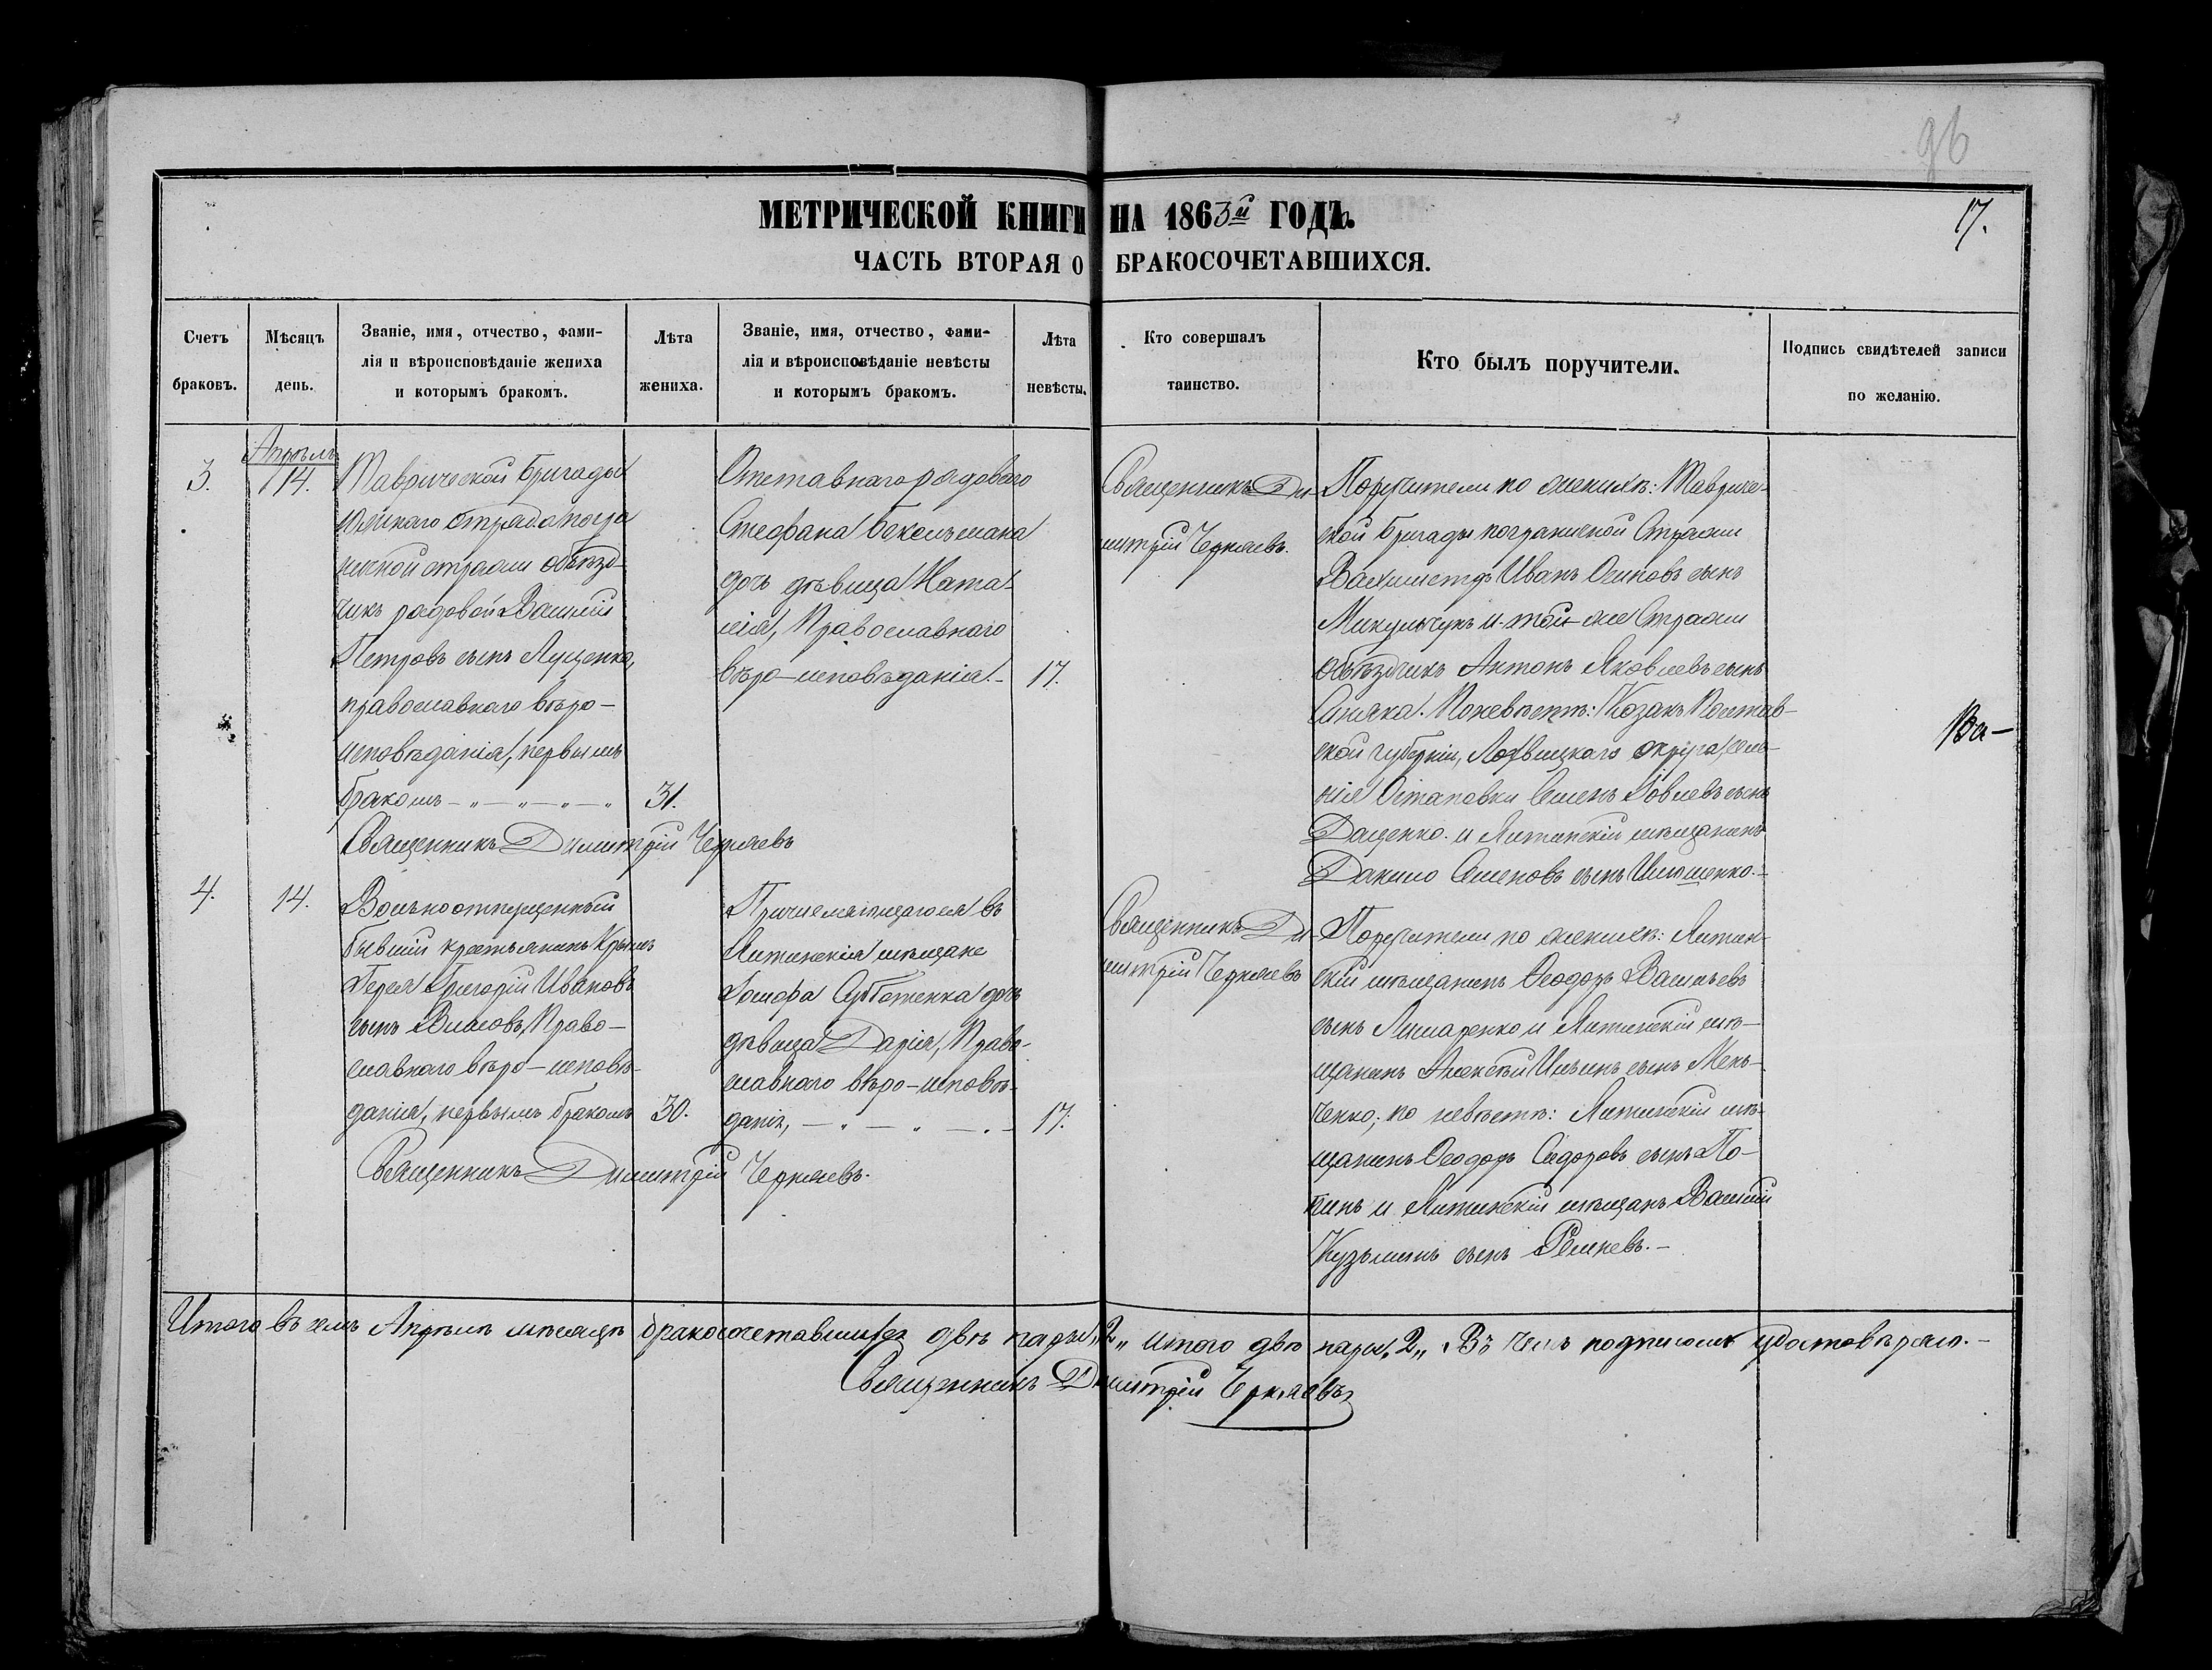 96
МЕТРИЧЕСКОЙ КНИГИ НА 1863й ГОДЪ.
17.
ЧАСТЬ ВТОРАЯ О БРАКОСОЧЕТАВШИХСЯ.
Счетъ браковъ.
Мѣсяцъ день.
Званіе, имя, отчество, фами-
лія и вѣроисповѣданіе жениха
и которымъ бракомъ.
Лѣта жениха.
Званіе, имя, отчество, фами-
лія и вѣроисповѣданіе невѣсты
и которымъ бракомъ.
Лѣта невѣсты.
Кто совершалъ
таинство.
Кто былъ поручители.
Подпись свидѣтелей записи
по желанію.
3.
Апрѣль
14.
Таврической Бригады
отряда погра
ничной стражи объѣзд-
чикъ рядовой Василій
Петровъ сынъ Луценко,
православнаго вѣро-
исповѣданія, первымъ
бракомъ - „ - „ - „ - „
31.
Отставнаго рядоваго
Стефана
дочь дѣвица Ната-
лія, Православнаго
вѣро-исповѣданія.-
17.
Священникъ Ди-
митрій Черняевъ.
Поручители по женихѣ: Тавриче-
ской Бригады пограничной Стражи
Вахмистръ Иванъ Осиповъ сынъ
Микульчукъ и той-же Стражи
объѣздчикъ Антонъ Яковлевъ сынъ
По невѣстѣ: Козакъ Полтав-
ской губерніи, Лохвицкаго округа, селе-
нія Остаповки Семенъ Іовлевъ сынъ
Даценко. и Ялтинскій мѣщанинъ
Данило Семеновъ сынъ Ильяшенко.-
Ва-
Священникъ Димитрій Черняевъ
4.
14.
Вольноотпущенный
бывшій крестьянинъ Крымъ
Герея Григорій Ивановъ
сынъ Власовъ, Право-
славнаго вѣро-исповѣ-
данія, первымъ бракомъ
30.
Причисляющагося въ
Ялтинскія мѣщане
Іосифа Субботенка дочь
дѣвица Дарія, Право-
славнаго вѣро-исповѣ-
данія, - „ - „ - „ -
17.
Священникъ Ди-
митрій Черняевъ
Поручители по женихѣ: Ялтин-
скій мѣщанинъ Ѳеодоръ Васильевъ
сынъ Лимаренко и Ялтинскій мѣ-
щанинъ Алексѣй Ильинъ сынъ Мень-
ченко; по невѣстѣ: Ялтинскій мѣ-
щанинъ Ѳеодоръ Сидоровъ сынъ По-
и Ялтинскій мѣщанъ Василій
Кузьминъ сынъ
Священникъ Димитрій Черняевъ.
Итого въ семъ Апрѣлѣ мѣсяцѣ бракосочетавшихся двѣ пары „2„ Итого двѣ пары „2„ Въ чемъ подписомъ удостовѣряю.-
Священникъ Димитрій Черняевъ